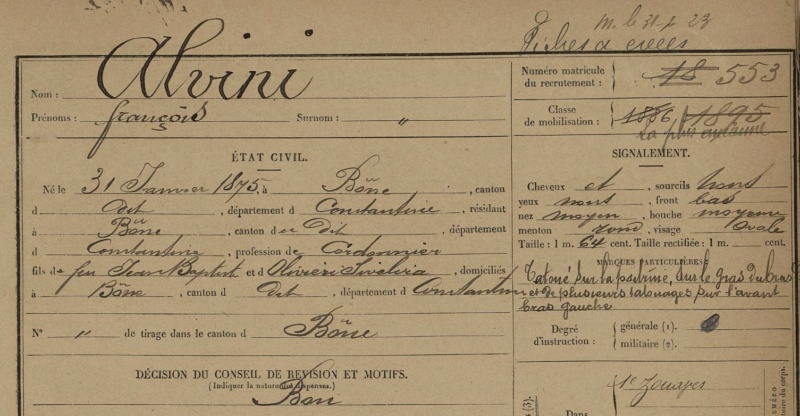 M. le 31-1-23
Fiches de créées
Alvini
Nom :
Prénoms : françois Surnom : "
Numéro matricule du recrutement : 18 553
Classe de mobilisation : 1886, 1895
La plus ancienne
ÉTAT CIVIL.
Né le 31 Janvier 1875, à Bône, canton
d dit, département d Constantine, résidant
à Bône, canton du dit, département
d Constantine, profession de Cordonnier
fils de feu Jean Baptist et d Oliveri Sivelria, domiciliés
à Bône, canton d dit, département d Constantine
N° " de tirage dans le canton d Bône
DÉCISION DU CONSEIL DE REVISION ET MOTIFS.
(Indiquer la nature des dispenses.)
Bon
SIGNALEMENT.
Cheveux et, sourcils noirs
yeux noirs, front bas
nez moyen, bouche moyenne
menton rond, visage ovale
Taille : 1 m. 64 cent. Taille rectifiée : 1 m. cent.
MARQUES PARTICULIÈRES
Tatoué sur la poitrine, sur le gras du bras
et de plusieurs tatouages sur l'avant
bras gauche
Degré d'instruction : générale (1). 0
militaire (2).
1er Zouaves
Dans
(3).
NUMÉRO
du corps.